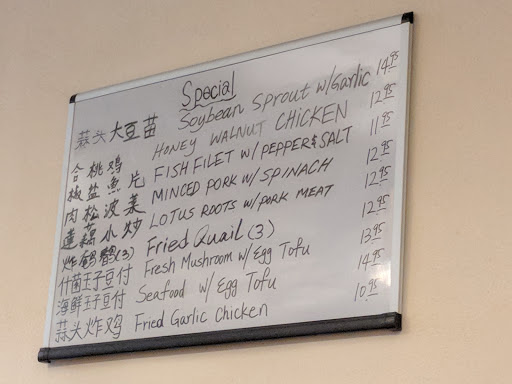 Special
蒜头大豆苗 Soybean Sprout w/Garlic 14.95
合桃鸡 HONEY WALNUT CHICKEN 12.95
椒盐魚片 FISH FILET w/ PEPPER & SALT 11.95
肉松波菜 MINCED PORK w/ SPINACH 12.95
蓮藕小炒 LOTUS ROOTS w/ PORK MEAT 12.95
炸鹌鹑(3) Fried Quail (3) 12.95
什菌玉子豆付 Fresh Mushroom w/ Egg Tofu 13.95
海鲜玉子豆付 Seafood w/ Egg Tofu 14.95
蒜头炸鸡 Fried Garlic Chicken 10.95